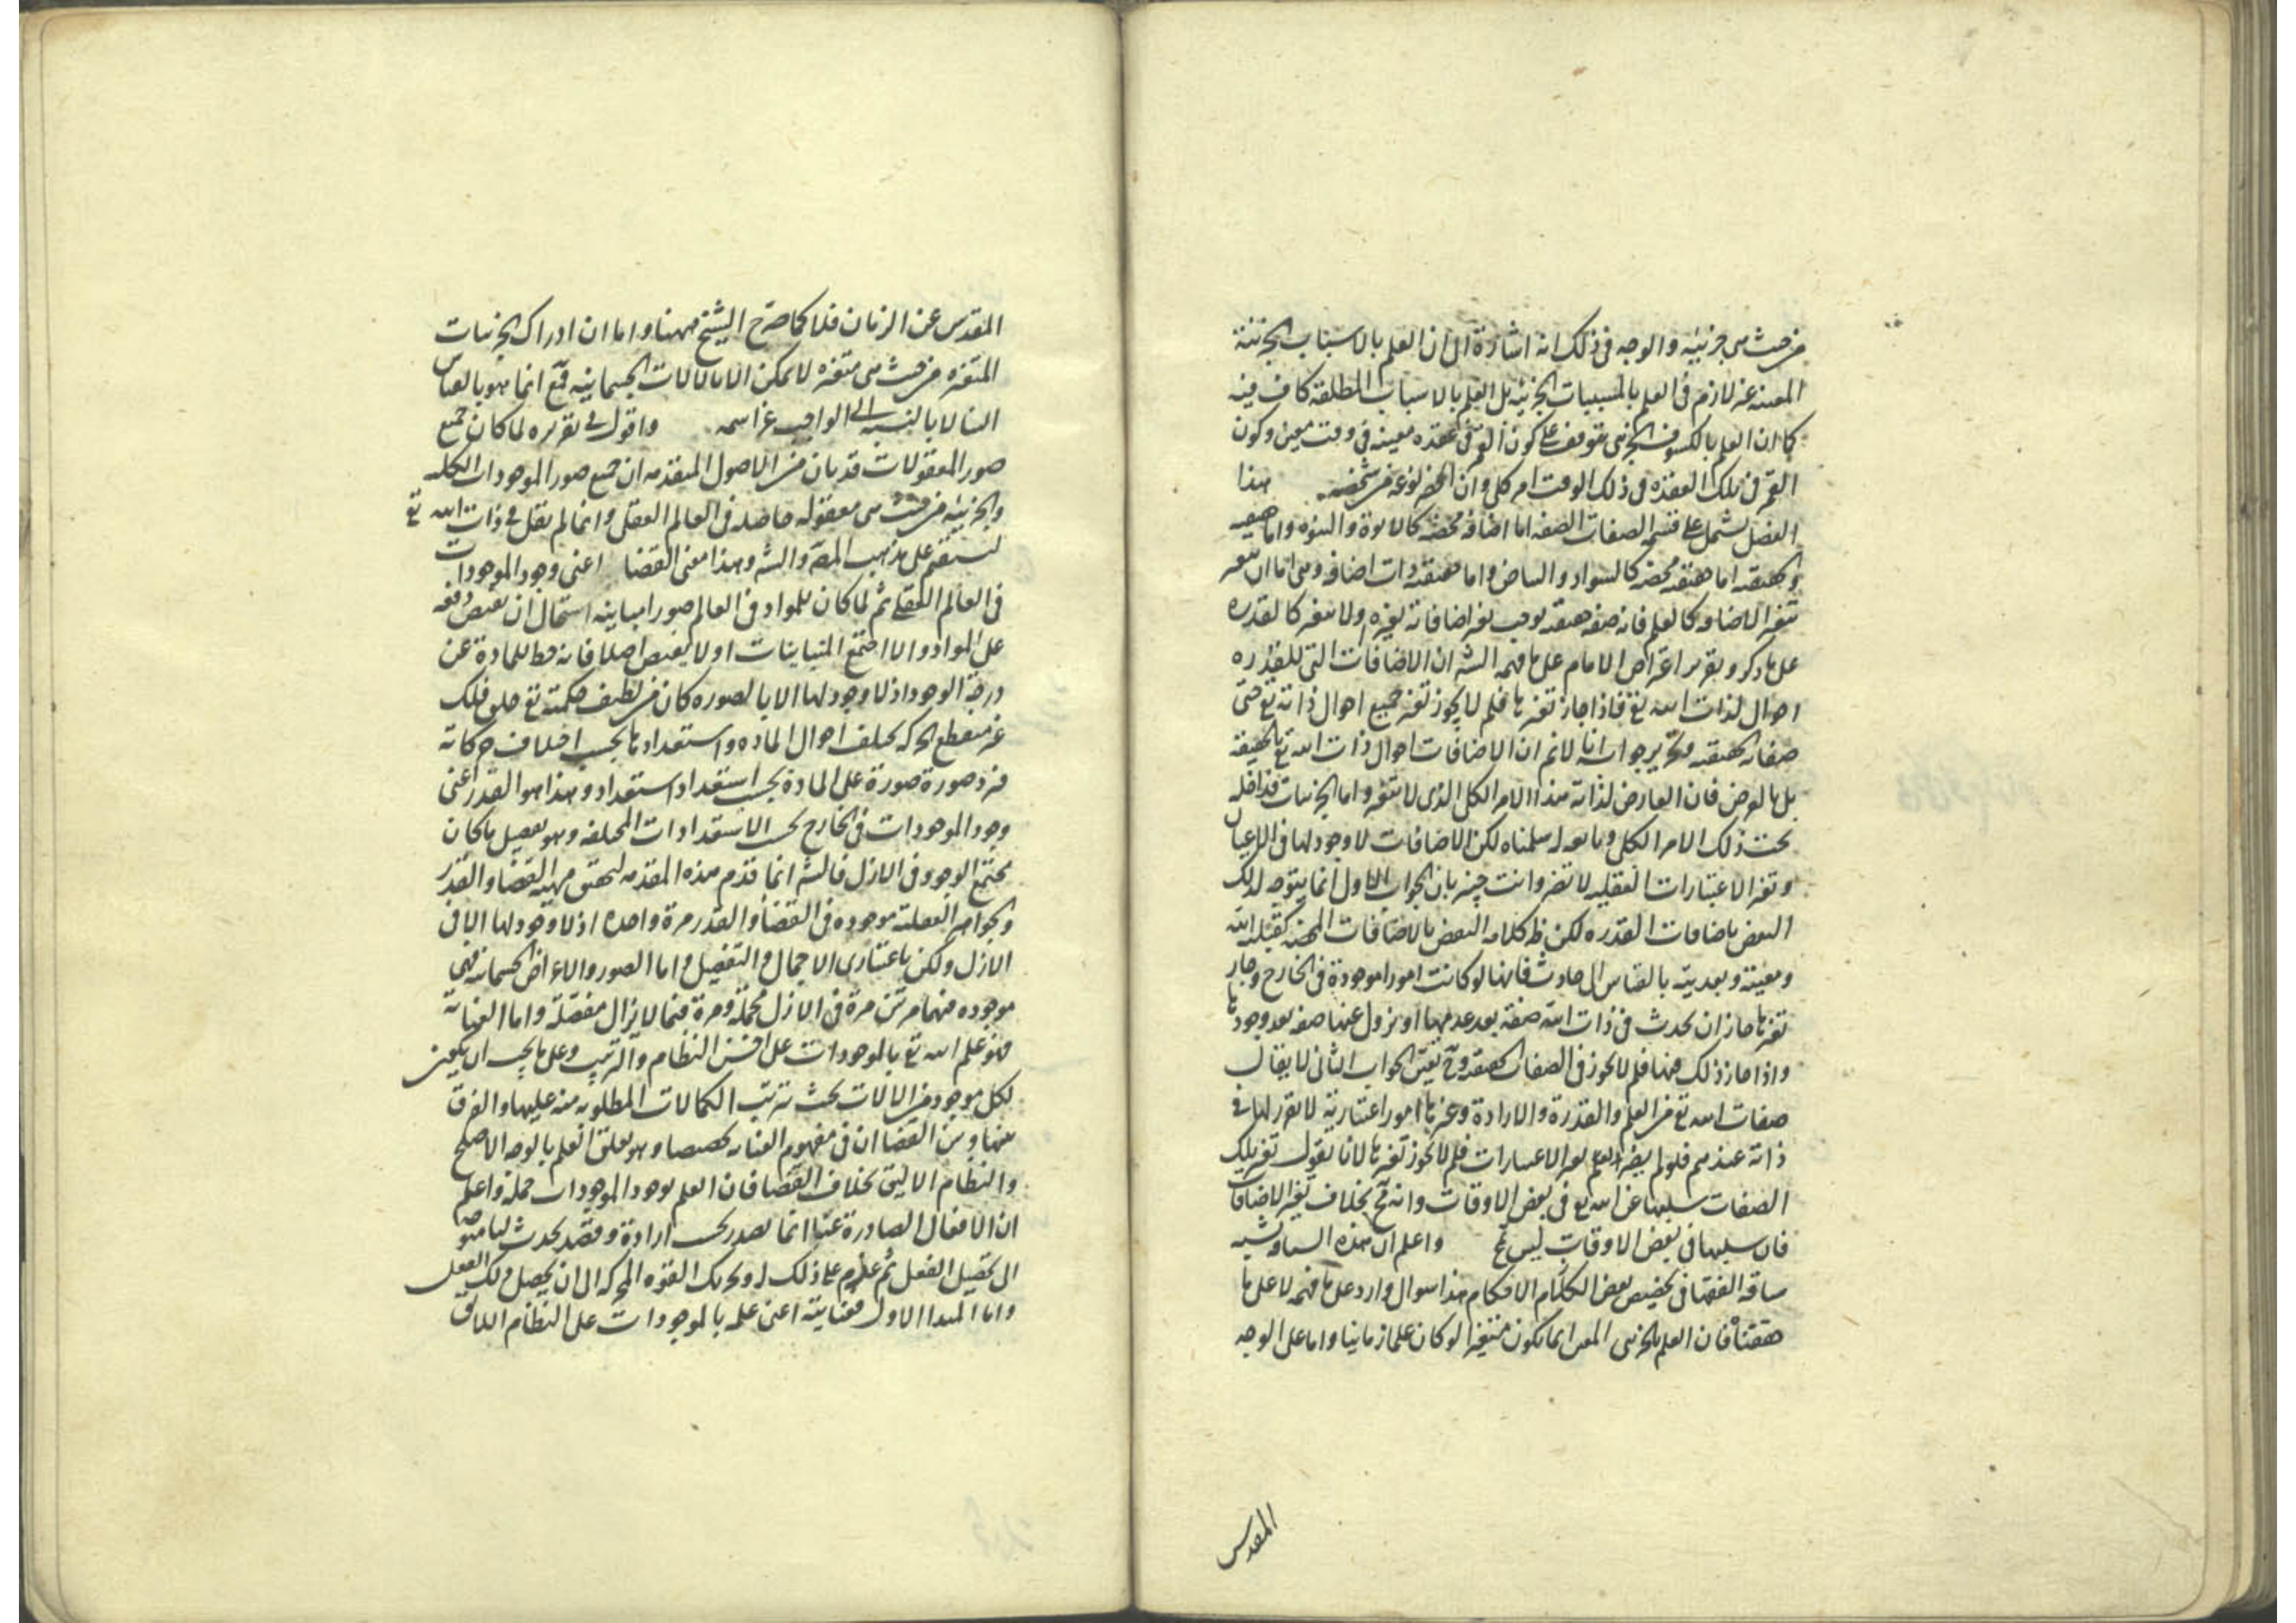 من حيث هى جزئية والوجه فى ذلك انه اشارة الى ان العلم بالاسباب الجزئية
المعينة غير لازم فى العلم بالمسببات الجزئية بل العلم بالاسباب المطلقة كاف فيه
كما ان العلم بالكسوف الجزئى يتوقف على كون القمر فى عقدة معينة فى وقت معين وكون
القمر فى تلك العقدة فى ذلك الوقت امر كلى وان انحصر نوعه فى شخصه هذا
الفصل يشتمل على قسمة الصفات الصفة اما اضافة محضة كالابوة والبنوة واما حقيقية
والحقيقية اما حقيقية محضة كالسواد والبياض واما حقيقية ذات اضافة وهى اما ان يتغير
بتغير الاضافة كالعلم فانه صفة حقيقية يوجب تغير اضافاته تغيره ولا يتغير كالقدرة
على ما ذكر وتقرير اعتراض الامام على ما فهمه الشه ان الاضافات التى للقدرة
احوال لذات الله تع فاذا جاز تغيرها فلم لا يجوز تغير جميع احوال ذاته تع حتى
صفاته الحقيقية وتحرير جوابه انا لانم ان الاضافات احوال ذات الله تع بالحقيقة
بل بالعرض فان العارض لذاته هذا الامر الكلى الذى لا يتغير واما الجزئيات فداخلة
تحت ذلك الامر الكلى سلمناه لكن الاضافات لا وجود لها فى الاعيان
وتغير الاعتبارات العقلية لا تضر وانت خبير بان الجواب الاول انما يتوجه لذلك
النقض باضافات القدرة لكن ظ كلامه النقض بالاضافات المحضة كقبلية الله
ومعية وبعدية بالقياس الى حادث فانها لو كانت امورا موجودة فى الخارج وجاز
تغيرها جاز ان يحدث فى ذات الله صفة بعد عدمها او يزول عنها صفة بعد وجودها
واذا جاز ذلك فيها فلم لا يجوز فى الصفات الحقيقية وح يتعين الجواب الثانى لا يقال
صفات الله تع من العلم والقدرة والارادة وغيرها امور اعتبارية لا تقرر لها فى
ذاته عندهم فلو لم يضر تغير الاعتبارات فلم لا يجوز تغيرها لانا نقول تغير تلك
الصفات سلبها عن الله تع فى بعض الاوقات وانه مح بخلاف تغير الاضافات
فان سلبها فى بعض الاوقات ليس مح واعلم ان هذه السياقة تشبه
سياقة الفقهاء فى تخصيص بعض الكلام الاحكام هذا سؤال وارد على ما فهمه لا على ما
حققناه فان العلم بالجزئى المتغير انما يكون متغيرا لو كان علما زمانيا واما على الوجه
المقدس
المقدس عن الزمان فلا كما صرح الشيخ ههنا واما ان ادراك الجزئيات
المتغيرة من حيث هى متغيرة لا يمكن الا بالالات الجسمانية فمم انما هو بالقياس
الينا لا بالنسبة الى الواجب عز اسمه واقول فى تقريره لما كان جميع
صور المعقولات قد بان من الاصول المتقدمة ان جميع صور الموجودات الكلية
والجزئية من حيث هى معقولة حاصلة فى العالم العقلى وانما لم يقل فى ذات الله تع
ليستقيم على مذهب المص والشه وهذا معنى القضا اعنى وجود الموجودات
فى العالم العقلى ثم لما كان للمواد فى العالم صورا متباينة استحال ان تفيض دفعة
على المواد والا اجتمع المتباينات او لا يفيض اصلا فانه حط للمادة عن
درجة الوجود اذ لا وجود لها الا بالصورة كان من لطيف حكمته تع خلق فلك
غير منقطع الحركة يختلف احوال المادة واستعداداتها بحسب اختلاف حركاته
فيرد صورة صورة على المادة بحسب استعداد استعداد وهذا هو القدر اعنى
وجود الموجودات فى الخارج بحسب الاستعدادات المختلفة وهو تفصيل ما كان
مجتمع الوجود فى الازل فالشه انما قدم هذه المقدمة لتحقيق مهية القضاء والقدر
والجواهر العقلية موجودة فى القضاء والقدر مرة واحدة اذ لا وجود لها الا فى
الازل ولكن باعتبارى الاجمال والتفصيل واما الصور والاعراض الجسمانية فهى
موجودة فيهما مرتين مرة فى الازل مجملة ومرة فيما لا يزال مفصلة واما العناية
فهو علم الله تع بالموجودات على احسن النظام والترتيب وعلى ما يجب ان يكون
لكل موجود من الالات بحيث ترتب الكمالات المطلوبة منه عليها والفرق
بينها وبين القضا ان فى مفهوم العناية تخصيصا وهو تعلق العلم بالوجه الاصلح
والنظام الاليق بخلاف القضا فان العلم بوجود الموجودات جملة واعلم
ان الافعال الصادرة عنا انما تصدر بحسب ارادة وقصد يحدث لنا متوجه
الى تحصيل الفعل ثم عزم على ذلك وتحريك القوة المحركة الى ان يحصل ذلك الفعل
واما المبدا الاول فعنايته اعنى علمه بالموجودات على النظام اللائق